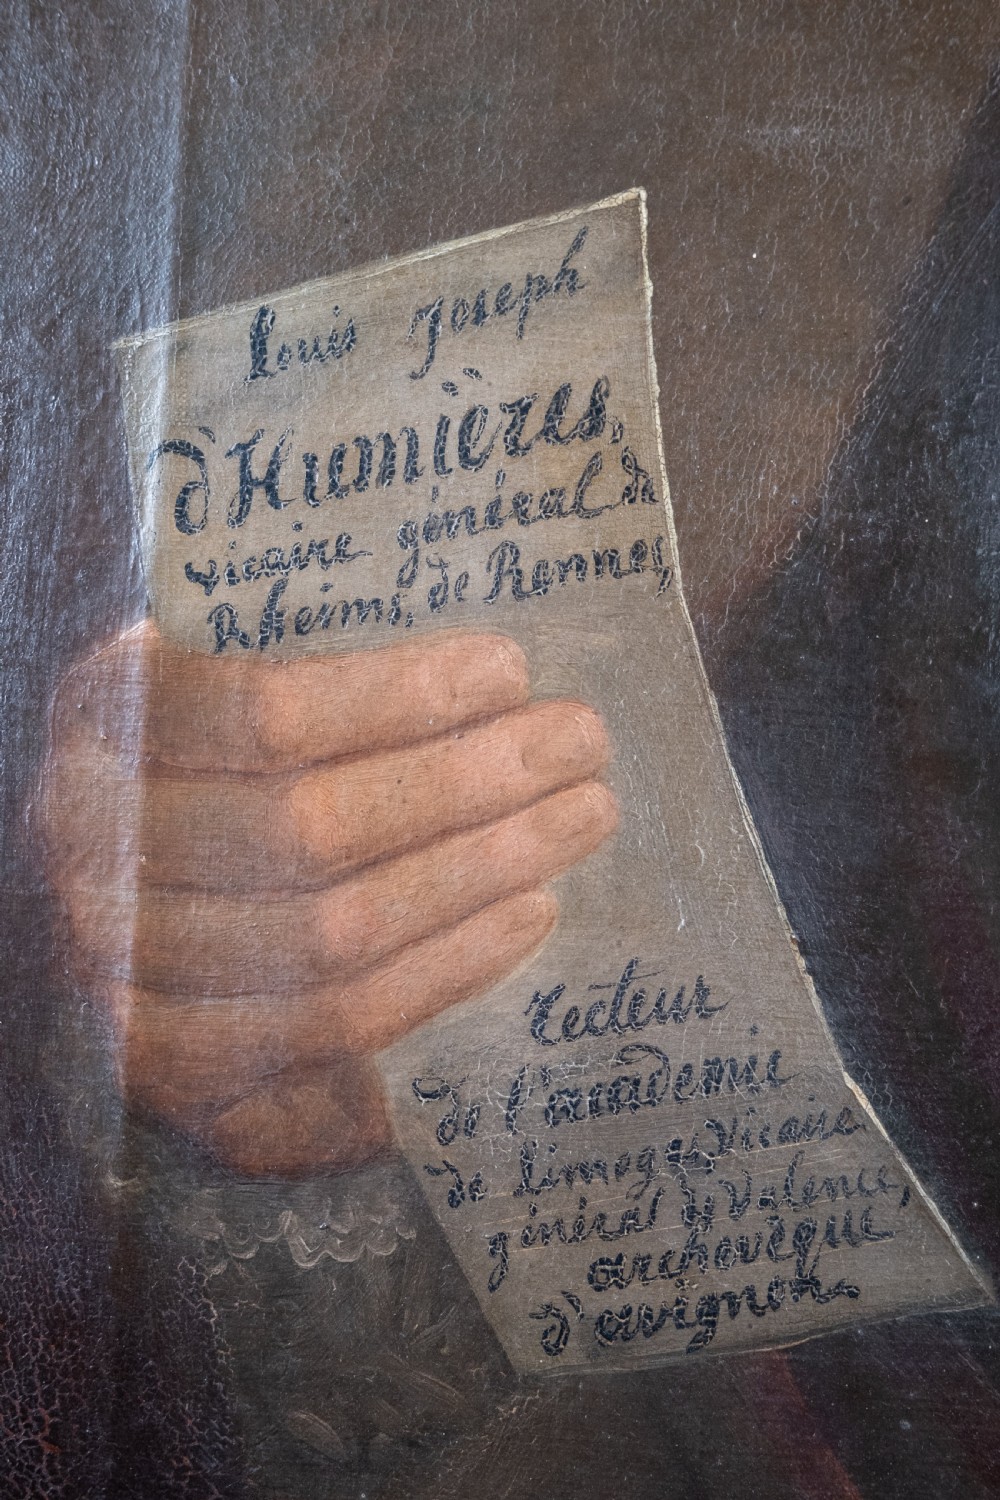 Louis Joseph
d'Humières,
vicaire général de
Rheims, de Rennes,
recteur
de l'academie
de Limoges, Vicaire
général de Valence,
archevêque
d'avignon.